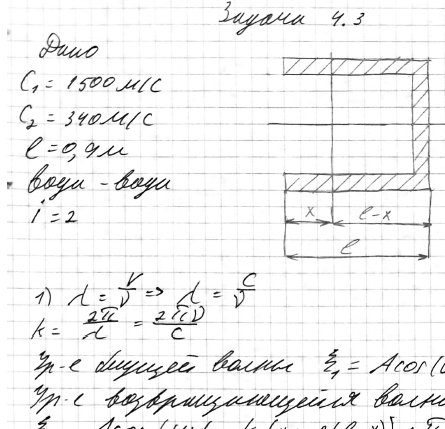 Задача 4.3
Дано
C₁ = 1500 м/с
C₂ = 340 м/с
l = 0,9 м
вода - вода
i = 2
x l-x
l
1) λ = V/ν => λ = C/ν
k = 2π/λ = 2πν/C
Ур-е бегущей волны ξ₁ = A cos(
Ур-е возвращающейся волны